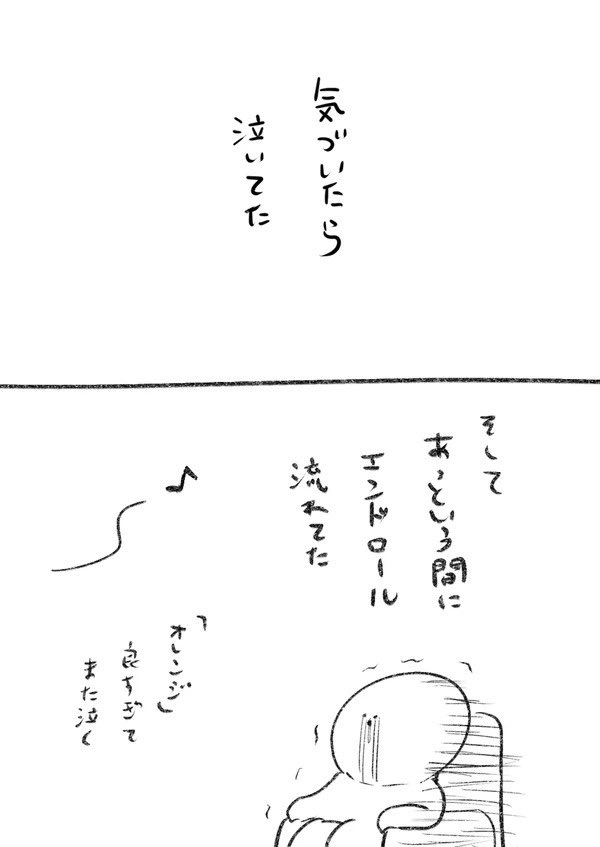 気づいたら
泣いてた
そして
あっという間に
エンドロール
流れてた
♪
「オレンジ」
良すぎて
また泣く